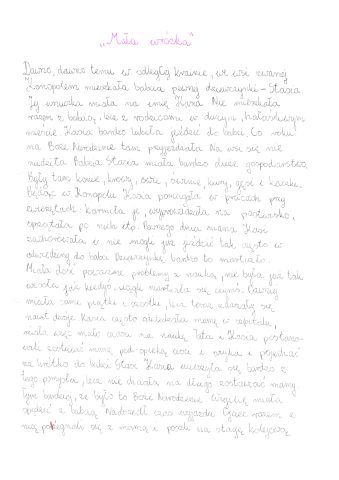 „Mała wróżka"
Dawno, dawno temu w odległej krainie, we wsi zwanej
Konopolem mieszkała babcia pewnej dziewczynki - Stasia
Jej wnuczka miała na imię Kasia Nie mieszkała
razem z babcią, lecz z rodzicami w dużym, hałaśliwym
mieście Kasia bardzo lubiła jeździć do babci. Co roku
na Boże Narodzenie tam przyjeżdżała Na wsi się nie
nudziła Babcia Stasia miała bardzo duże gospodarstwo.
Były tam konie, krowy, owce, świnie, kury, gęsi i kaczki.
Będąc w Konopolu Kasia pomagała w pracach przy
zwierzętach: karmiła je, wyprowadzała na pastwisko,
sprzątała po nich itp. Pewnego dnia mama Kasi
zachorowała i nie mogła już jeździć tak często w
odwiedziny do babci Dziewczynkę bardzo to martwiło.
Miała dość poważne problemy z nauką, nie była już tak
wesoła jak kiedyś, ciągle martwiła się czymś. Dawniej
miała same piątki i szóstki, lecz teraz zdarzały się
nawet dwóje. Kasia często odwiedzała mamę w szpitalu,
miała więc mało czasu na naukę Tata i Kasia postano-
wili zostawić mamę pod opieką cioci i wujka i pojechać
na krótko do babci Stasi Kasia ucieszyła się bardzo z
tego pomysłu, lecz nie chciała na długo zostawiać mamy
tym bardziej, że było to Boże Narodzenie Wigilię miała
spędzić z babcią Nadszedł czas wyjazdu Ojciec razem z
nią pożegnali się z mamą i poszli na stację kolejową